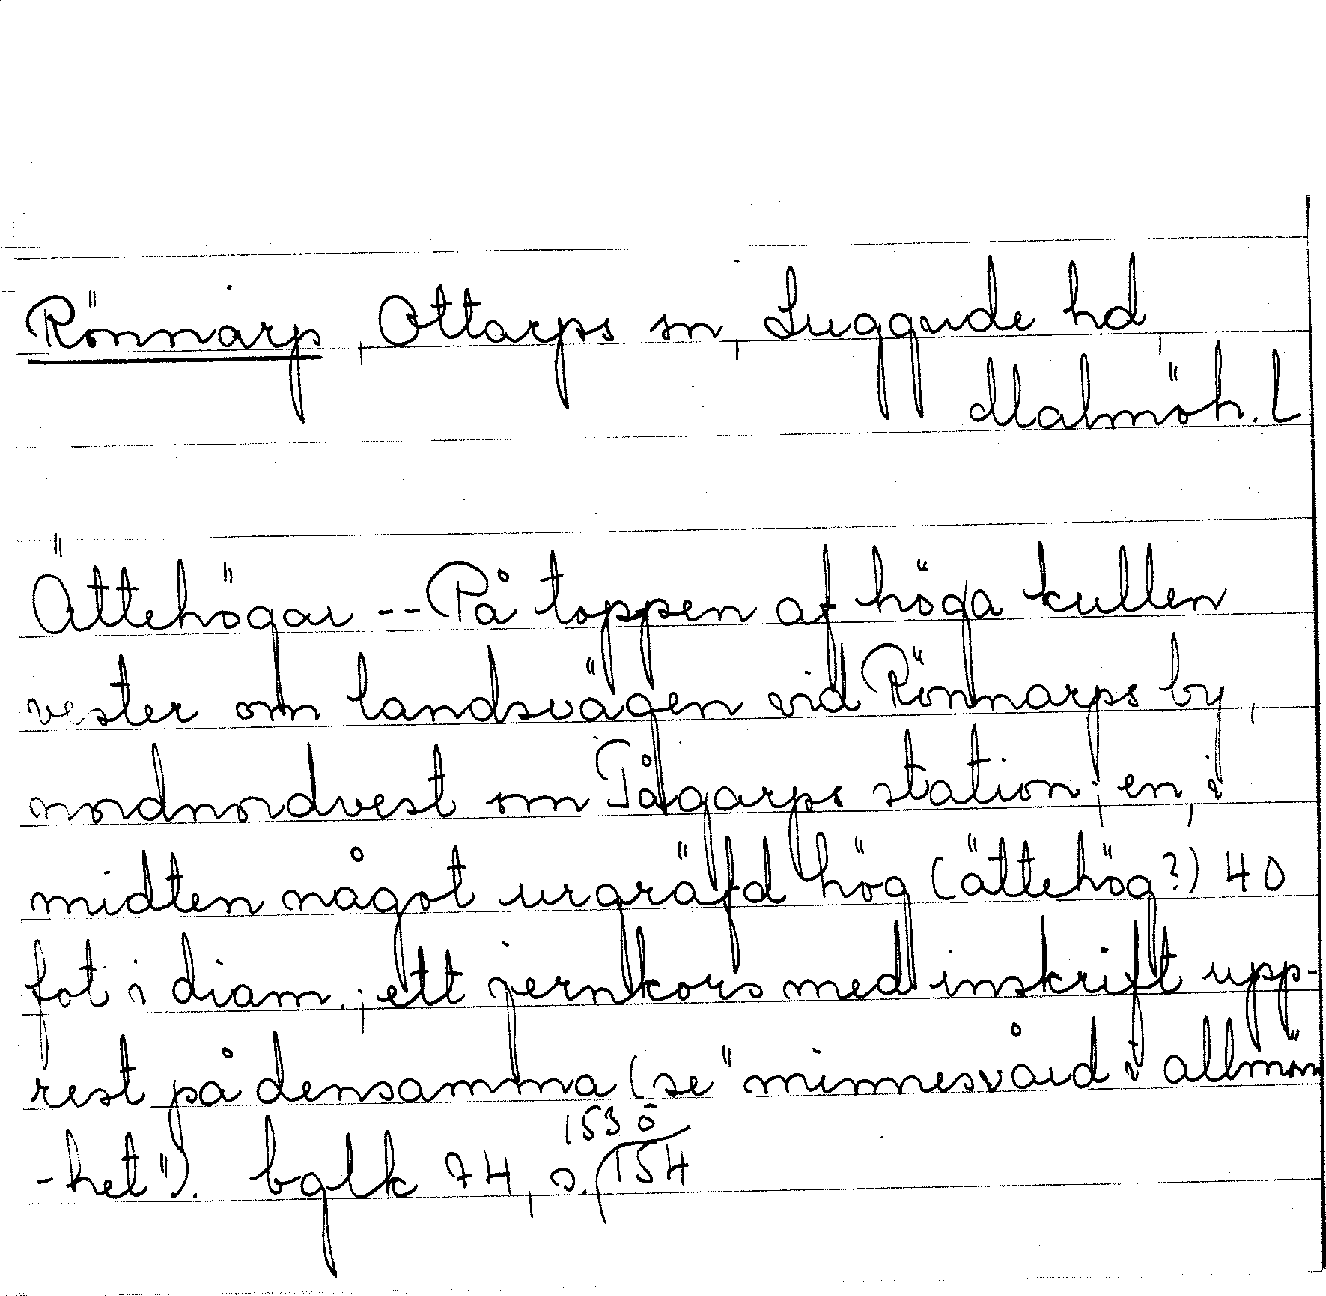 Rönnarp, Ottarps sn, Luggude hd
Malmöh. L
Ättehögar -- På toppen af höga kullen
vester om landsvägen vid Rönnarps by,
nordnordvest om Tågarps station; en, i
midten något urgräfd hög (ättehög?) 40
fot i diam.; ett jernkors med inskrift upp-
rest på densamma (se "minnesvård i allmän
-het"). bglk 74, s. 154
153 ö